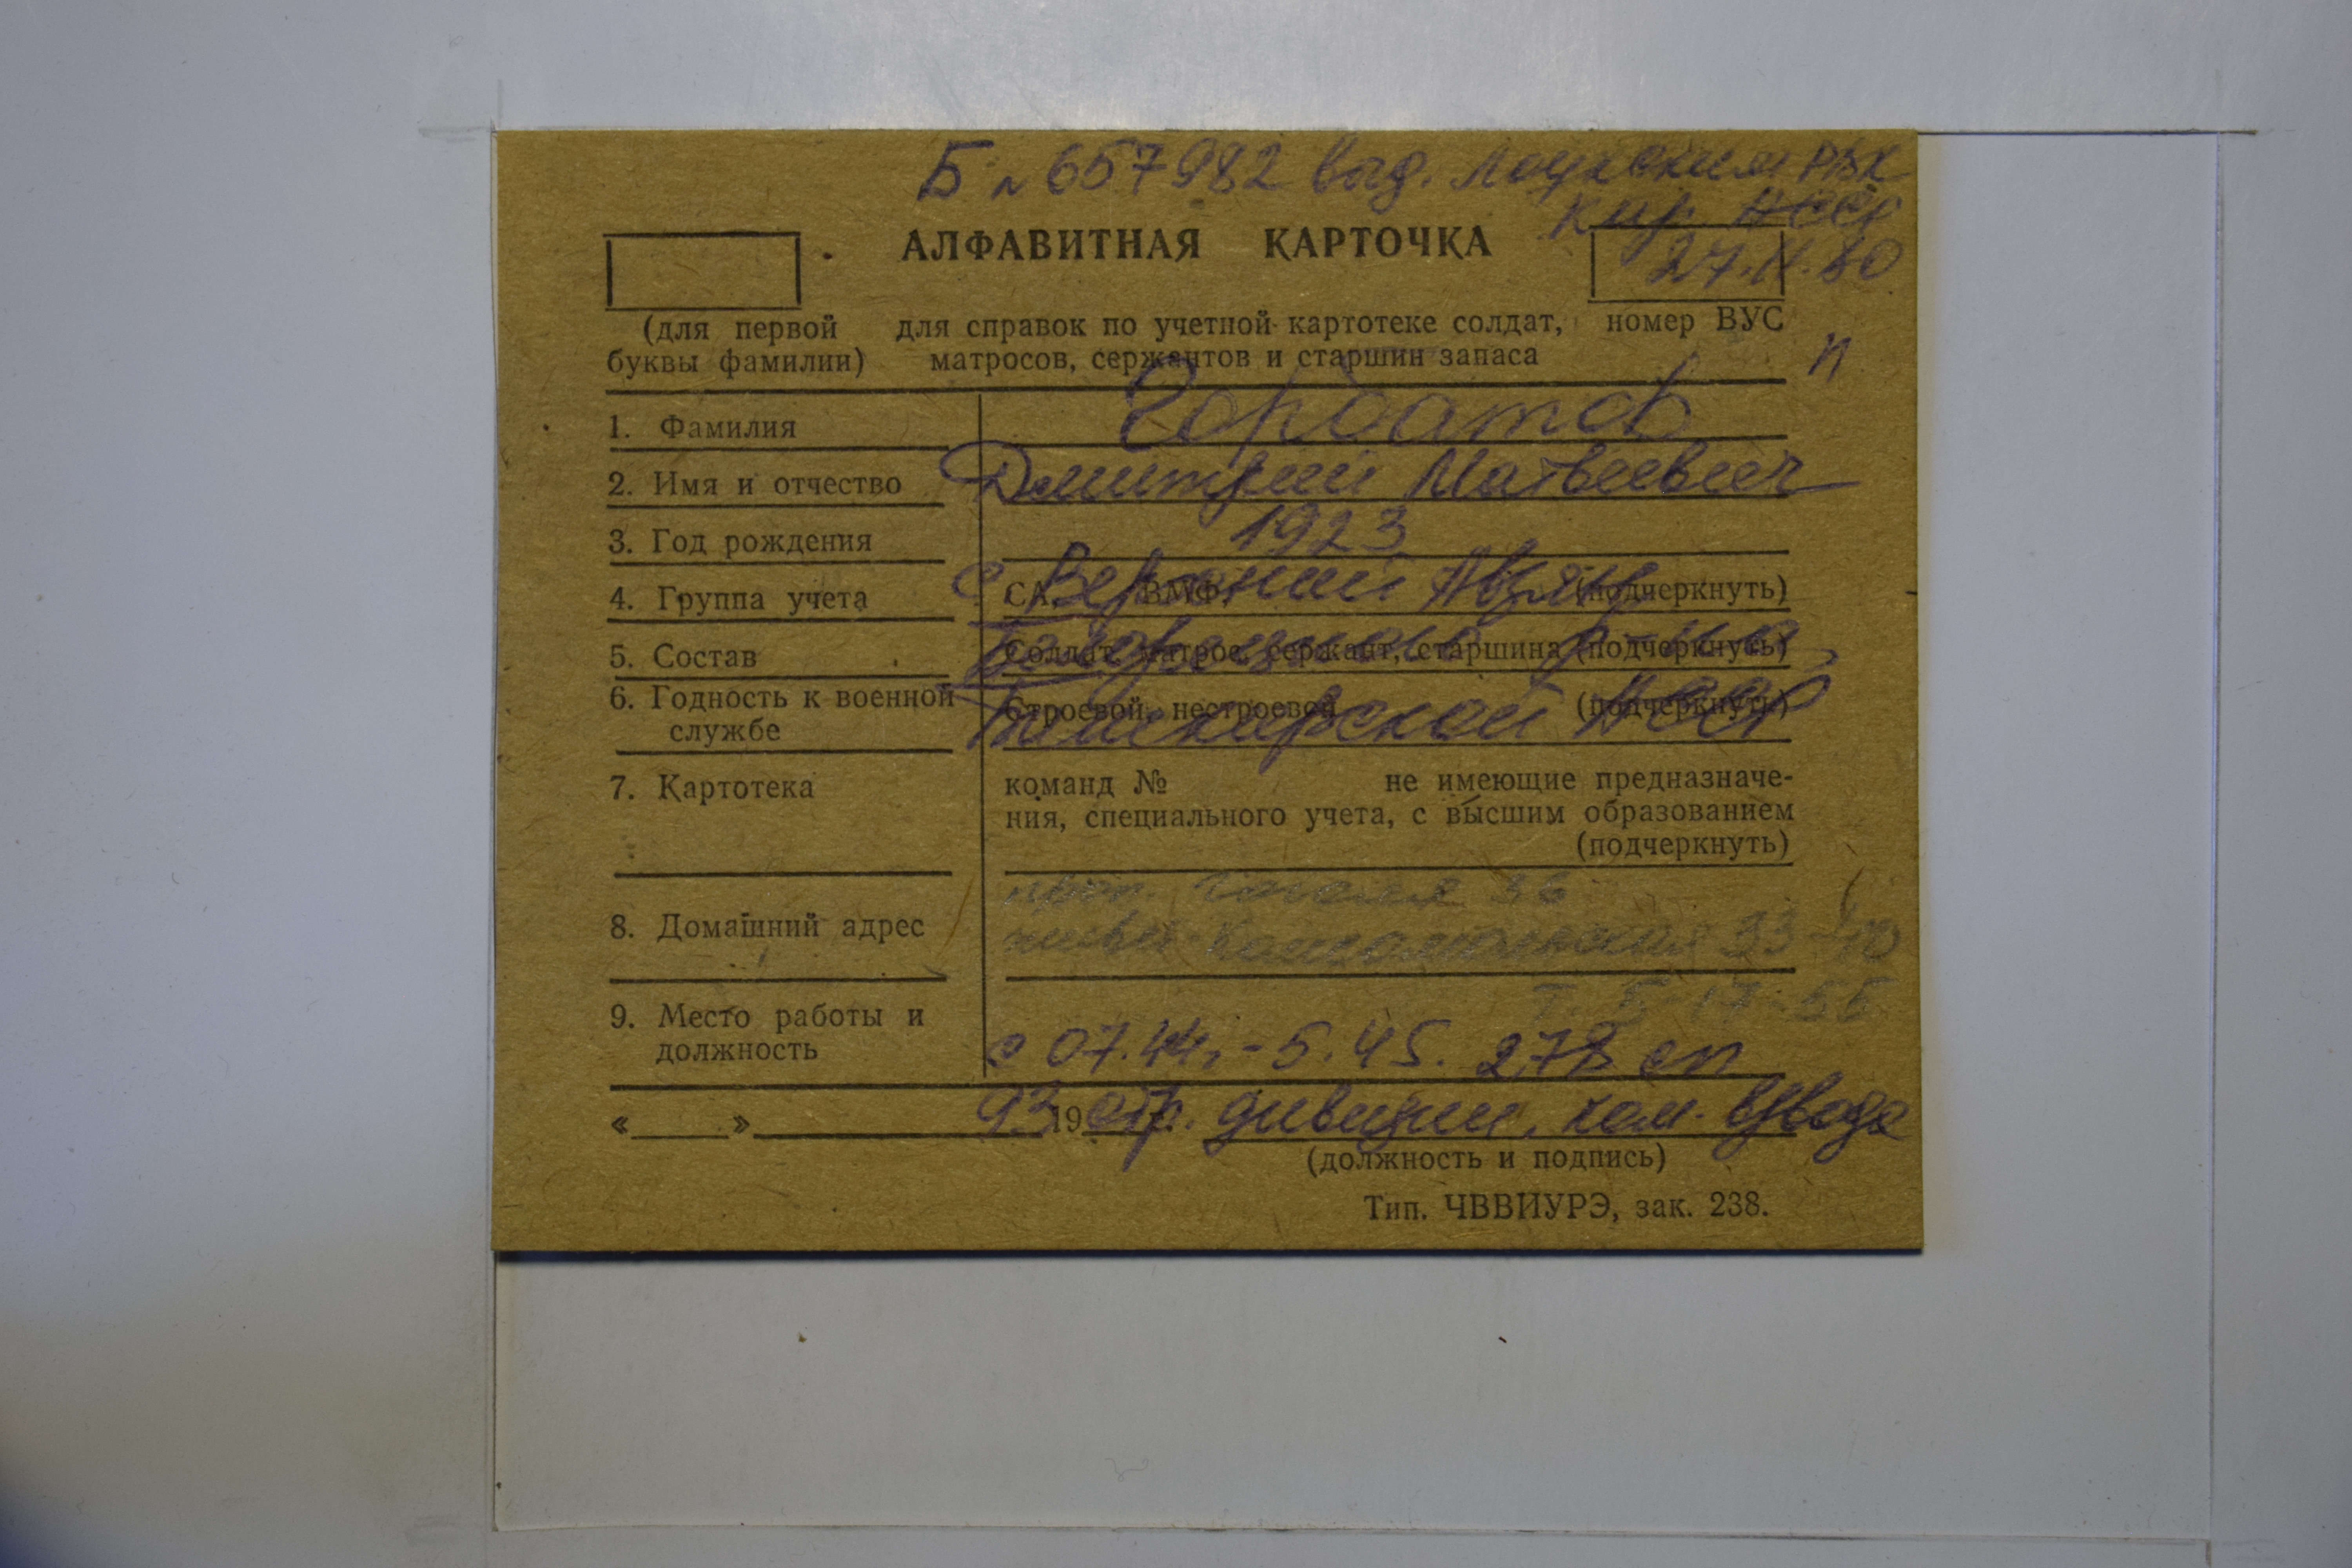 Б № 657982 выд. Лоухским РВК
Кар. АССР
27.II.80
АЛФАВИТНАЯ КАРТОЧКА
(для первой буквы фамилии)
для справок по учетной картотеке солдат,
матросов, сержантов и старшин запаса
номер ВУС
п
1. Фамилия Горбатов
2. Имя и отчество Дмитрий Матвеевич
3. Год рождения 1923
4. Группа учета СА, ВМФ, (подчеркнуть)
с Верхний Авзян
5. Состав Солдат, матрос, сержант, старшина (подчеркнуть)
р-на
6. Годность к военной службе Строевой, нестроевой (подчеркнуть)
Башкирской АССР
7. Картотека команд № не имеющие предназначе-
ния, специального учета, с высшим образованием
(подчеркнуть)
8. Домашний адрес
проп. Гоголя 36
Комсомольская 33-
т. 5-17-55
9. Место работы и должность
с 07.44г.-5.45. 278 сп
93 стр. дивизии, ком. взвода
« » 19
(должность и подпись)
Тип. ЧВВИУРЭ, зак. 238.